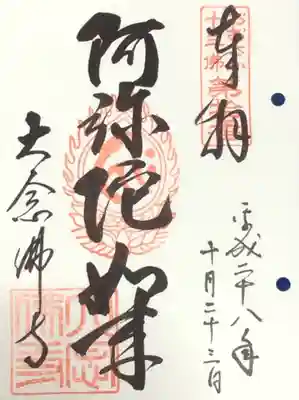 奉拝
平成二十八年
十月二十三日
阿弥陀如来
大念佛寺